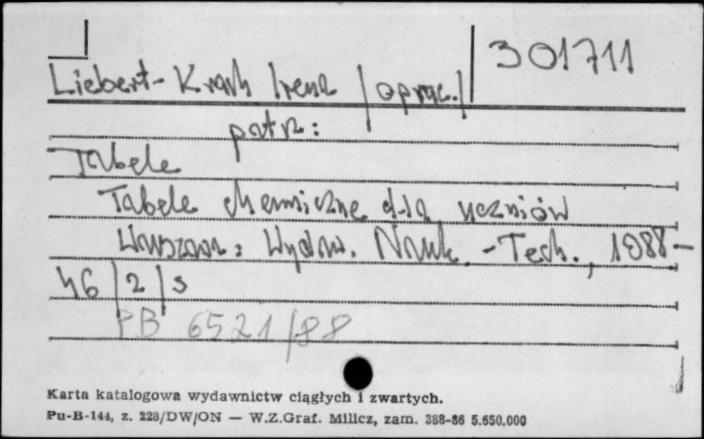 301711
Liebert- Krach Irena /oprac./
patrz:
Tabele
Tabele chemiczne dla uczniów
Warszawa: Wydaw. Nauk. -Tech., 1988-
46/2/s
PB 6521/88
Karta katalogowa wydawnictw ciągłych i zwartych.
Pu-B-144, z. 228/DW/ON — W.Z.Graf. Milicz, zam. 388-86 5.650.000